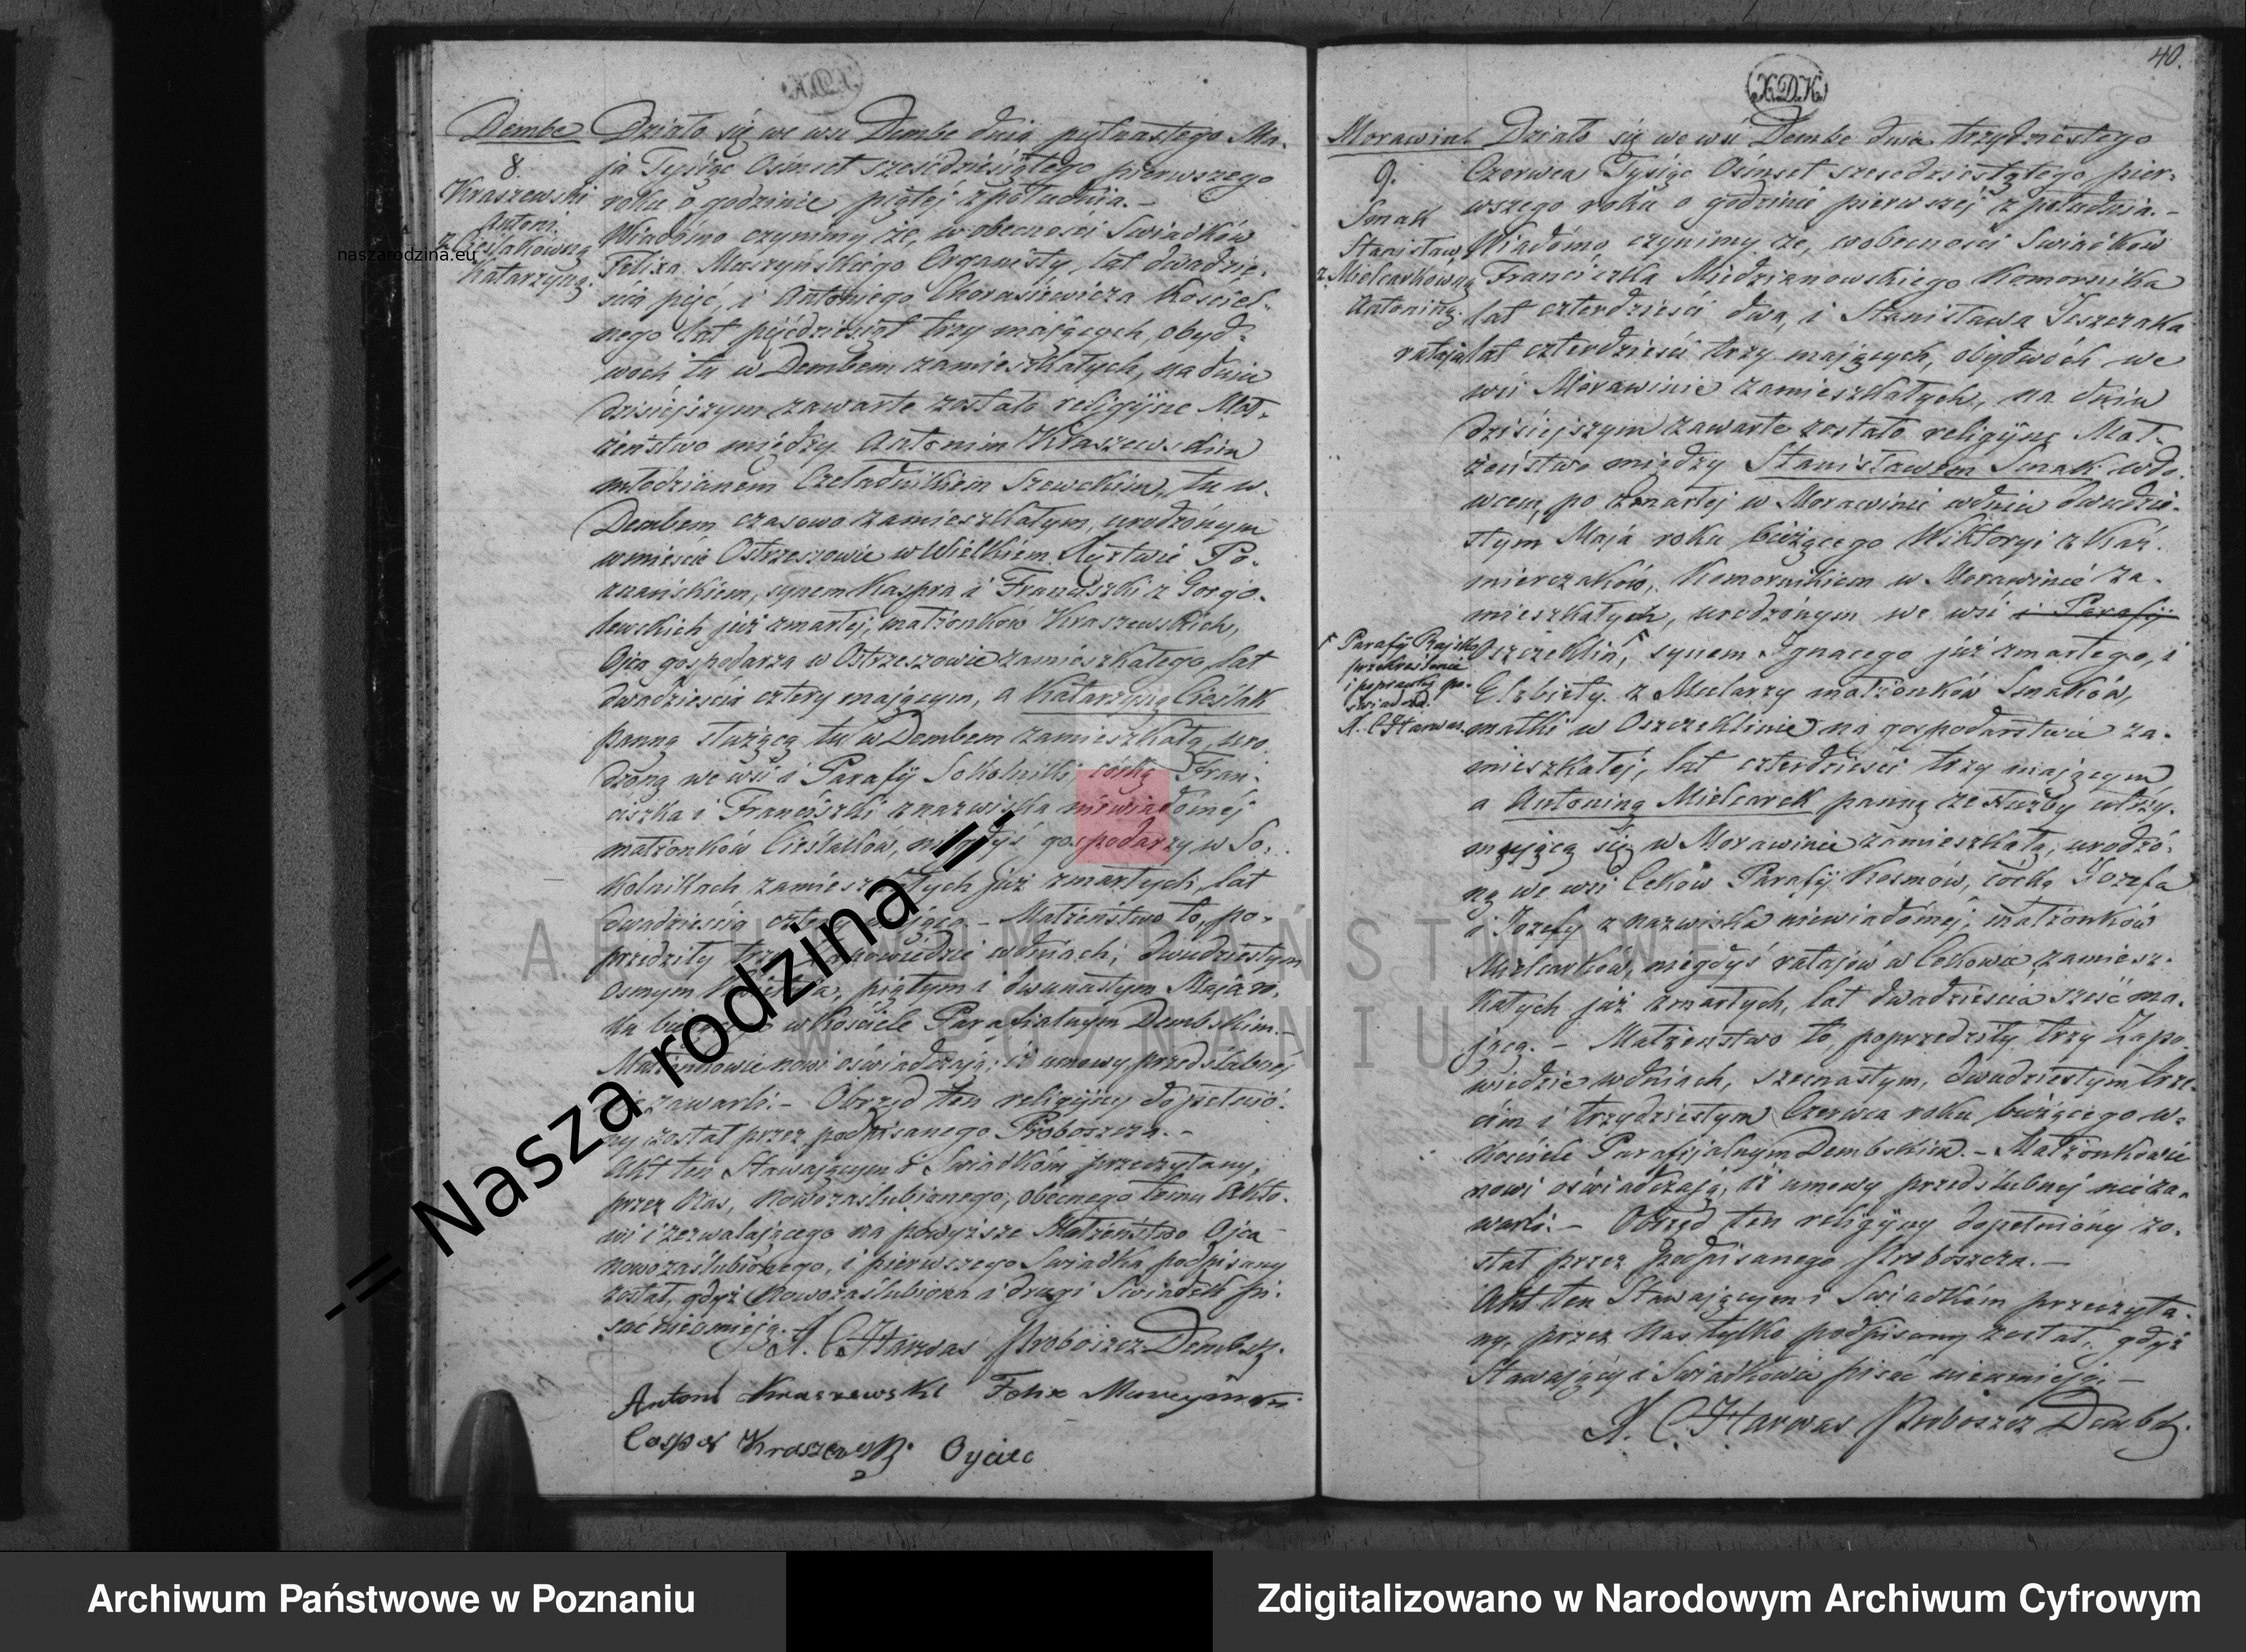 Dembe
8.
Kraszewski
Antoni.
z Cieślakówną
Katarzyną.
Działo się we wsi Dembe dnia piętnastego Ma-
ja Tysiąc Ośmset sześćdziesiątego pierwszego
roku o godzinie piątej z południa. –
Wiadomo czynimy że, w obecności Swiadków
Felixa Muszyńskiego Organisty, lat dwadzie-
ścia pięć, i Antoniego Chorasiewicza Kościel-
nego lat pięćdziesiąt trzy mających, obyd-
woch tu w Dembem zamieszkałych, na dniu
dzisiejszym zawarte zostało religijne Mał-
żeństwo między Antonim Kraszewskim
młodzianem Czeladnikiem Szewckim, tu w
Dembem czasowo zamieszkałym, urodzonym
w mieście Ostrzeszowie w Wielkiem Xięstwie Po-
znańskiem, synem Kaspra i Franciszki z Gorgo-
lewskich już zmarłej, małżonków Kraszewskich,
Ojca gospodarza w Ostrzeszowie zamieszkałego, lat
dwadzieścia cztery mającym, a Katarzyną Cieślak
panną służącą tu w Dembem zamieszkałą, uro-
dzoną we wsi i Parafii Sokolniki, córką Fran-
ciszka i Franciszki z nazwiska niewiadomej
małżonków Cieślaków, niegdyś gospodarzy w So-
kolnikach zamieszkałych już zmarłych, lat
dwadzieścia cztery mającą. – Małżeństwo to, po-
przedziły trzy zapowiedzie w dniach, dwudziestym
osmym Kwietnia, piątym i dwunastym Maja ro-
ku bieżącego w Kościele Parafialnym Dembskim. –
Małżonkowie nowi oświadczają, iż umowy przedślubnej
nie zawarli. – Obrzęd ten religijny dopełnio-
ny został przez podpisanego Proboszcza. –
Akt ten Stawającym i Swiadkóm przeczytany,
przez Nas, Nowozaślubionego, obecnego temu Akto-
wi i zezwalającego na powyższe Małżeństwo Ojca
nowozaślubionego, i pierwszego Swiadka podpisany
został, gdyż Nowozaślubiona i drugi Swiadek pi-
sać nieumieją.
X. C. Harwas Proboszcz Dembsk.
Antoni Kraszewski Felix Muszyński
Casper Kraszewski Oyciec
40.
X.D.K.
Morawin
9.
Smak
Stanisław
z Mielcarkówną
Antoniną.
Działo się we wsi Dembe dnia trzydziestego
Czerwca Tysiąc Ośmset sześćdziesiątego pier-
wszego roku o godzinie pierwszej z południa. –
Wiadomo czynimy że, w obecności Swiadków
Franciszka Miedzianowskiego Komornika
lat czterdzieści dwa, i Stanisława Jeszczaka
rataja lat czterdzieści trzy mających, obydwóch we
wsi Morawinie zamieszkałych, na dniu
dzisiejszym zawarte zostało religijne Mał-
żeństwo między Stanisławem Smak wdo-
wcem po zmarłej w Morawinie w dniu dwudzie-
stym Maja roku bieżącego Wiktoryi z Kaź-
mierczaków, Komornikiem w Morawinie za-
mieszkałych, urodzonym we wsi i Parafii
Parafii Rajsko
przekreślenie
i poprawkę po-
świadcza.
X. C Harwas.
Oszczeklin, synem Ignacego już zmarłego, i
Elżbiety z Mularzy małżonków Smaków,
matki w Oszczeklinie na gospodarstwie za-
mieszkałej, lat czterdzieści trzy mającym
a Antoniną Mielcarek panną ze służby utrzy-
mującą się w Morawinie zamieszkałą, urodzo-
ną we wsi Ceków Parafii Kosmów, córką Józefa
i Józefy z nazwiska niewiadomej, małżonków
Mielcarków, niegdyś ratajów w Cekowie zamiesz-
kałych już zmarłych, lat dwadzieścia sześć ma-
jącą. – Małżeństwo to poprzedziły trzy Zapo-
wiedzie w dniach, szesnastym, dwudziestym trze-
cim i trzydziestym Czerwca roku bieżącego w
Kościele Parafijalnym Dembskim. – Małżonkowie
nowi oświadczają, iż umowy przedślubnej nieza-
warli. – Obrzęd ten religijny dopełniony zo-
stał przez podpisanego Proboszcza. –
Akt ten Stawającym i Swiadkóm przeczyta-
ny, przez Nas tylko podpisany został, gdyż
Stawający i Swiadkowie pisać nieumieją. –
X. C. Harwas Proboszcz Dembsk.
naszarodzina.eu
-= Nasza rodzina =-
ARCHIWUM PAŃSTWOWE
W POZNANIU
Archiwum Państwowe w Poznaniu
Zdigitalizowano w Narodowym Archiwum Cyfrowym